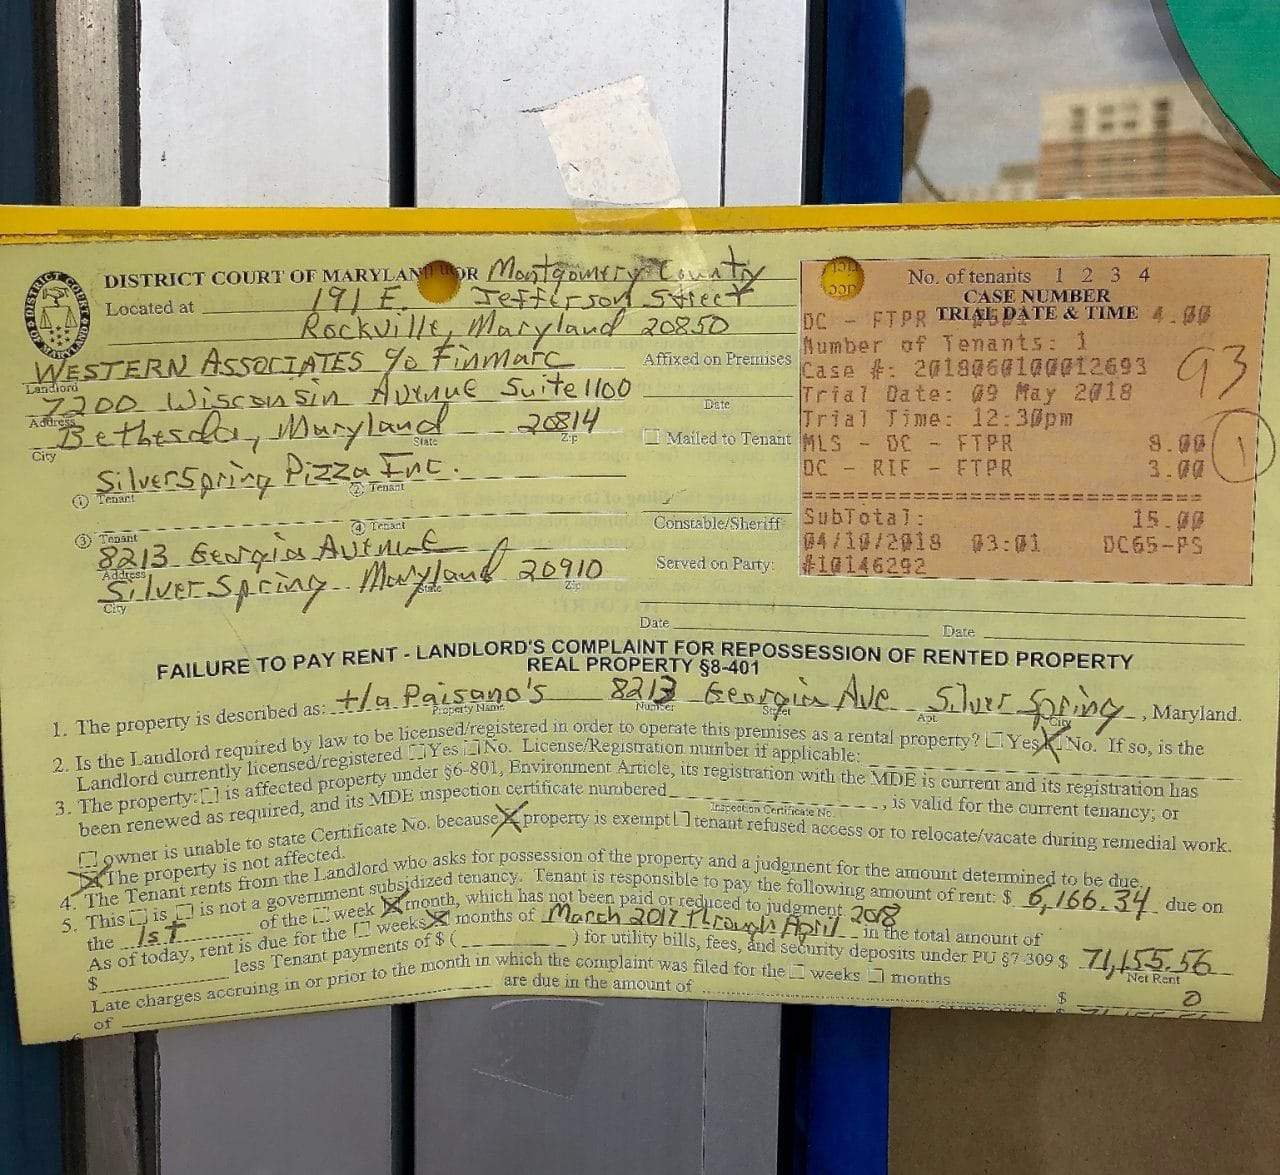 DISTRICT COURT OF MARYLAND FOR Montgomery County
Located at 191 E. Jefferson Street
Rockville, Maryland 20850
WESTERN ASSOCIATES c/o Finmarc
Landlord
7200 Wisconsin Avenue Suite 1100
Address
Bethesda, Maryland 20814
City State Zip
SilverSpring Pizza Inc.
① Tenant ② Tenant
③ Tenant ④ Tenant
8213 Georgia Avenue
Address
Silver Spring Maryland 20910
City State Zip
Affixed on Premises
Date
Mailed to Tenant
Constable/Sheriff
Served on Party:
Date Date
No. of tenants 1 2 3 4
CASE NUMBER
TRIAL DATE & TIME
DC - FTPR 4.00
Number of Tenants: 1
Case #: 2018060100012693
Trial Date: 09 May 2018
Trial Time: 12:30pm
MLS - DC - FTPR 8.00
DC - RIF - FTPR 3.00
==============================
SubTotal: 15.00
04/10/2018 03:01 DC65-PS
#10146292
93
1
FAILURE TO PAY RENT - LANDLORD'S COMPLAINT FOR REPOSSESSION OF RENTED PROPERTY
REAL PROPERTY §8-401
1. The property is described as: t/a Paisano's 8213 Georgia Ave Silver Spring, Maryland.
Property Name Number Street Apt. City
2. Is the Landlord required by law to be licensed/registered in order to operate this premises as a rental property? Yes No. If so, is the
Landlord currently licensed/registered Yes No. License/Registration number if applicable:
3. The property: is affected property under §6-801, Environment Article, its registration with the MDE is current and its registration has
been renewed as required, and its MDE inspection certificate numbered , is valid for the current tenancy; or
Inspection Certificate No.
owner is unable to state Certificate No. because property is exempt tenant refused access or to relocate/vacate during remedial work.
The property is not affected.
4. The Tenant rents from the Landlord who asks for possession of the property and a judgment for the amount determined to be due.
5. This is is not a government subsidized tenancy. Tenant is responsible to pay the following amount of rent: $ 6,166.34 due on
the 1st of the week month, which has not been paid or reduced to judgment.
As of today, rent is due for the weeks months of March 2017 through April 2018 in the total amount of
$ less Tenant payments of $ ( ) for utility bills, fees, and security deposits under PU §7-309 $ 71,155.56
Net Rent
Late charges accruing in or prior to the month in which the complaint was filed for the weeks months
of are due in the amount of $ 0